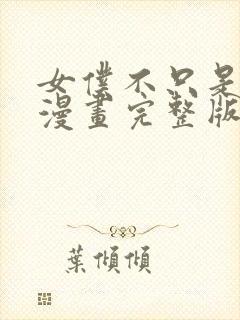 女僕不只是
漫畫完整版
葉傾傾